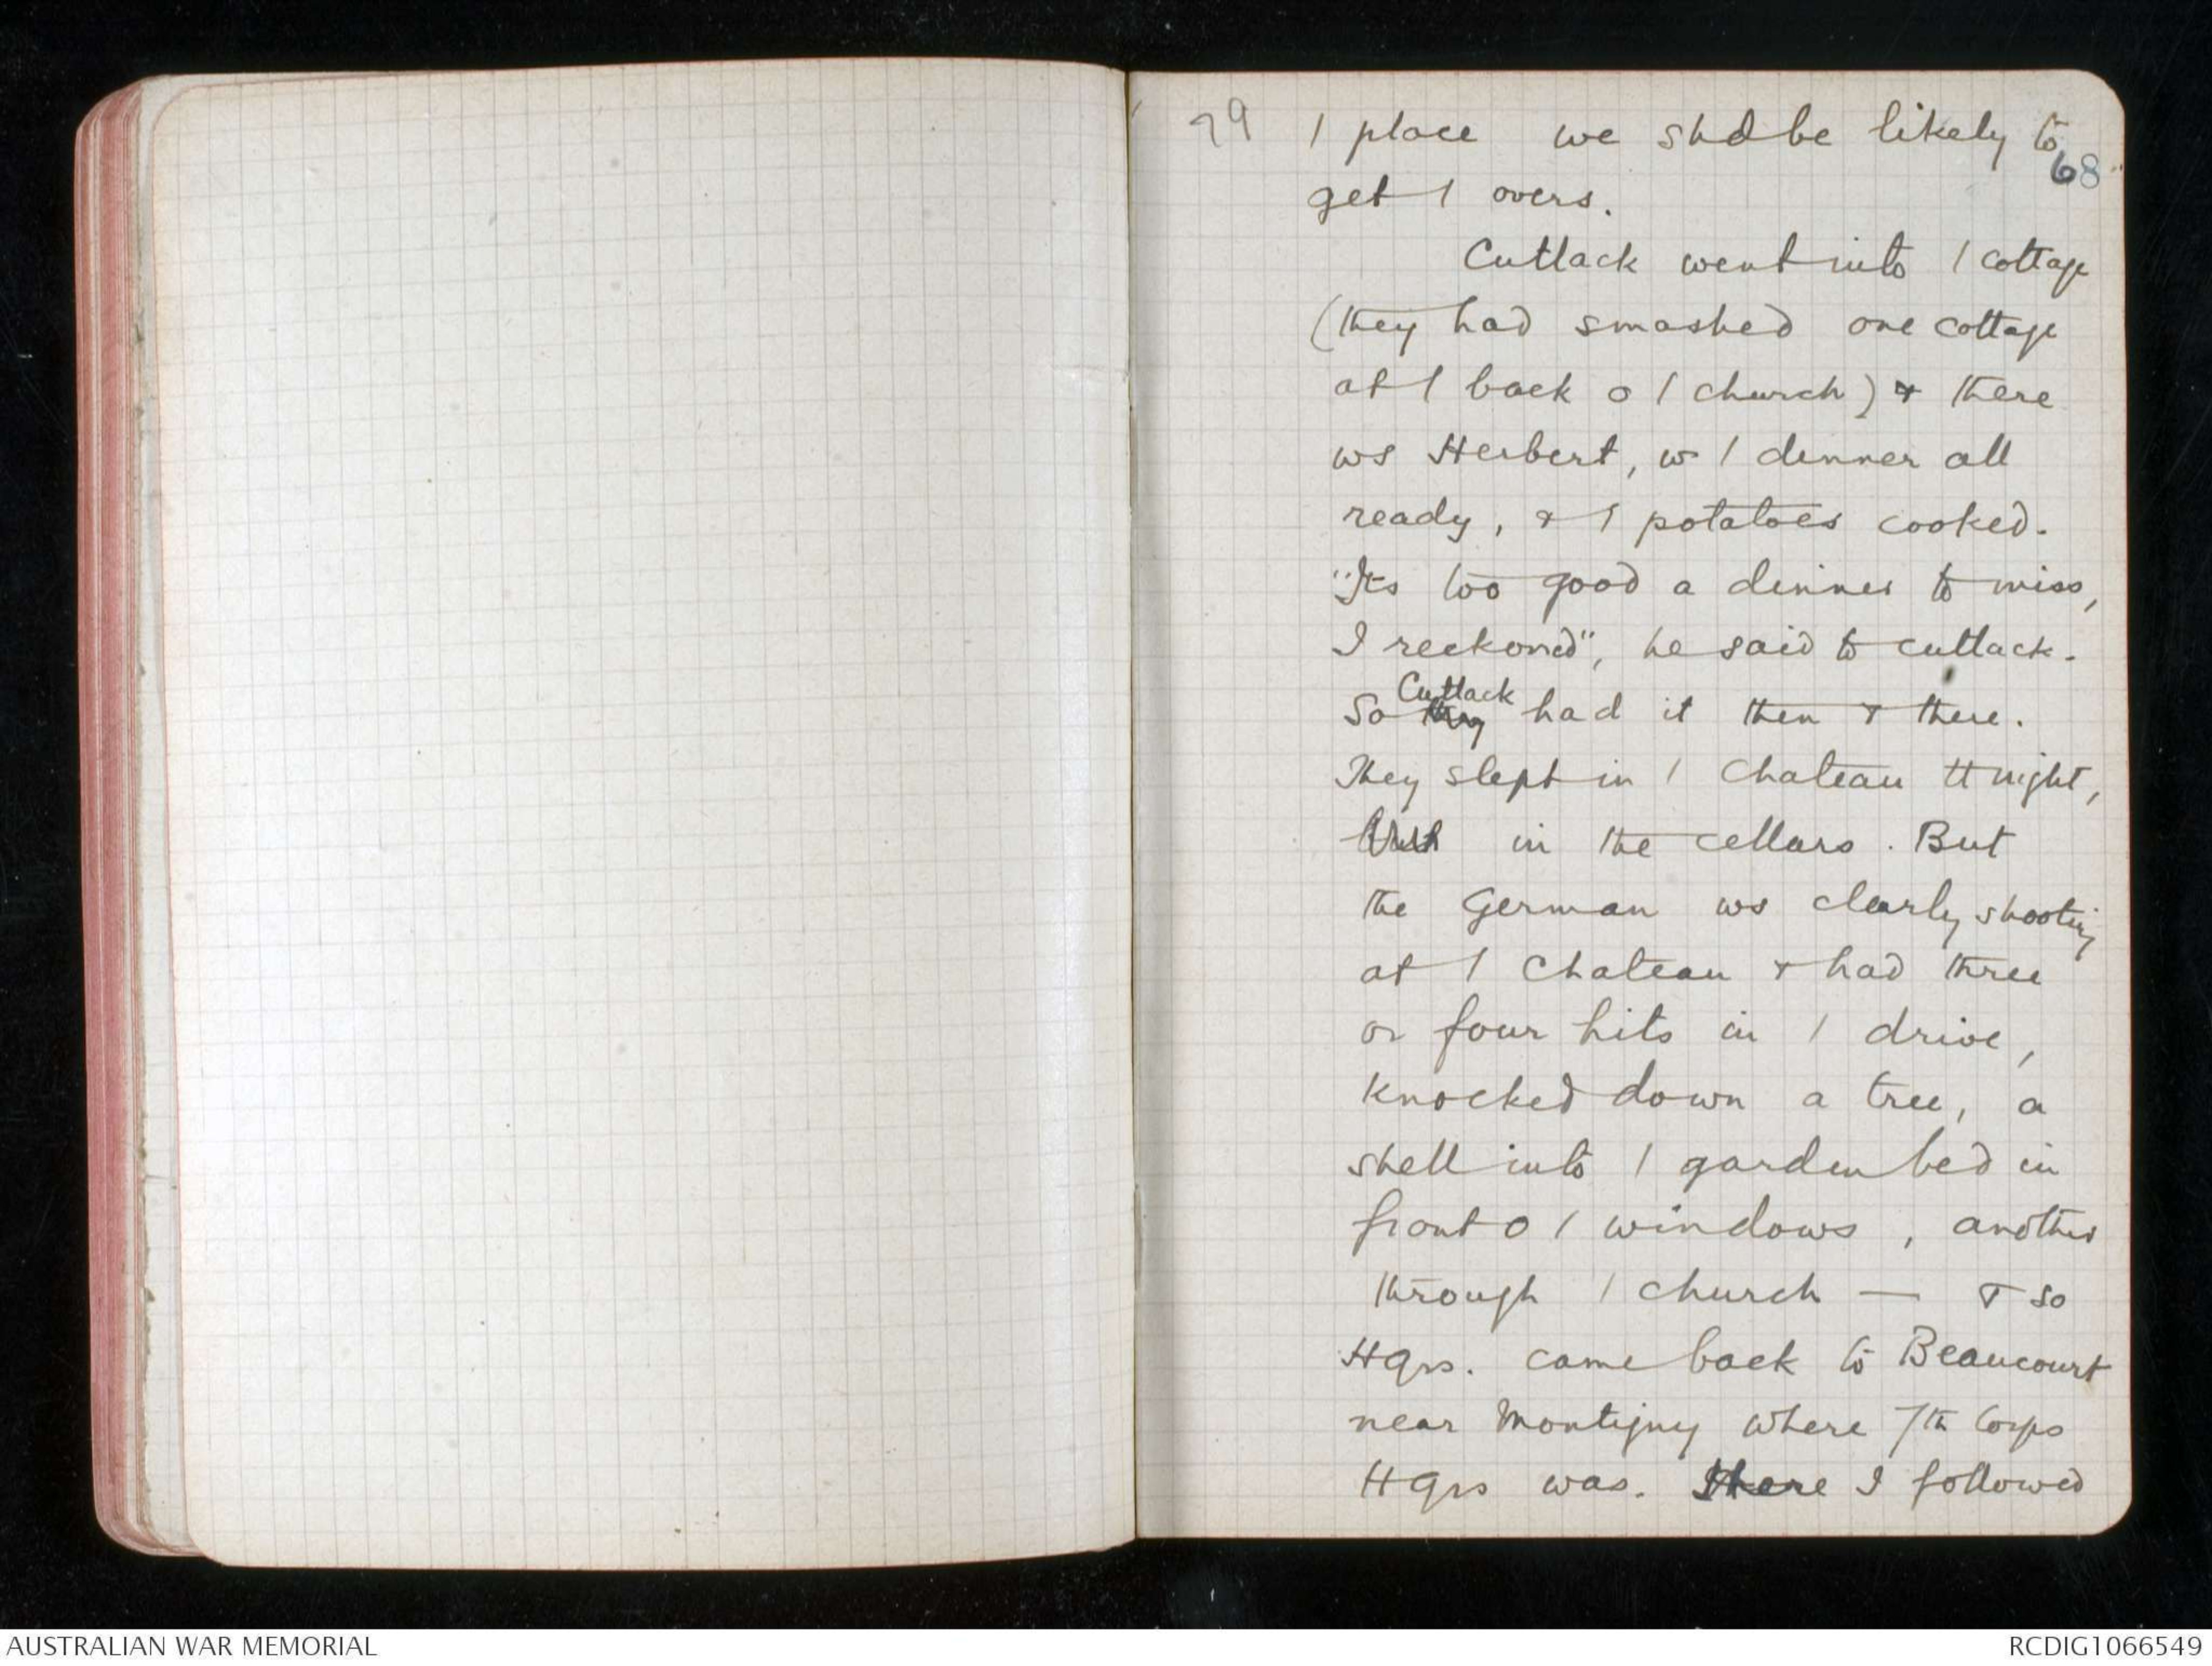 79
1 place we shd be likely to
68
get 1 overs.
Cutlack went into 1 cottage
(they had smashed one cottage
at 1 back o 1 church) & there
ws Herbert, w 1 dinner all
ready, & 1 potatoes cooked.
"Its too good a dinner to miss,
I reckoned", he said to Cutlack.
Cutlack
So they had it then & there.
They slept in 1 Chateau tt night,
in the cellars. But
the German ws clearly shooting
at 1 Chateau & had three
or four hits in 1 drive,
knocked down a tree, a
shell into 1 garden bed in
front o 1 windows, another
through 1 church — & so
HQrs. came back to Beaucourt
near Montigny where 7th Corps
HQrs was. Here I followed
AUSTRALIAN WAR MEMORIAL
RCDIG1066549